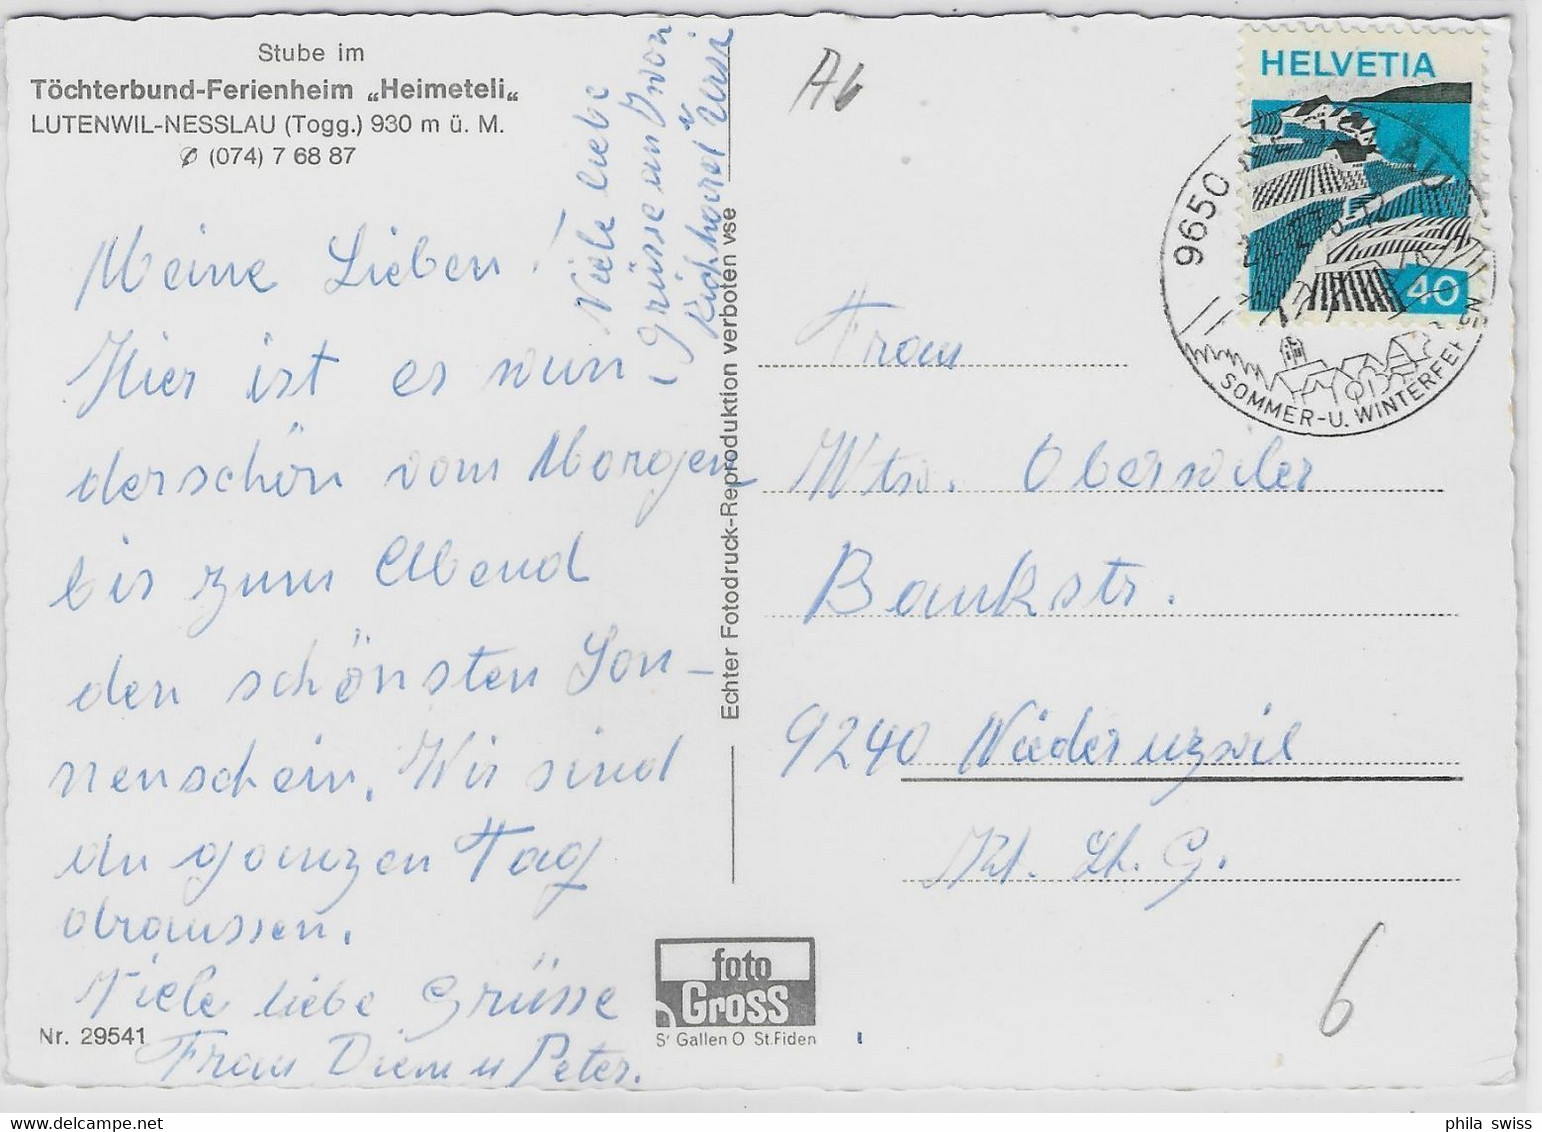 Stube im
Töchterbund-Ferienheim „Heimeteli“
LUTENWIL-NESSLAU (Togg.) 930 m ü. M.
✆ (074) 7 68 87
Meine Lieben!
Hier ist es wun
derschön vom Morgen
bis zum Abend
den schönsten Son-
nenschein. Wir sind
den ganzen Tag
draussen.
Viele liebe Grüsse
Frau Diem u Peter.
Nr. 29541
Viele liebe
Grüsse an
Ursi
Echter Fotodruck-Reproduktion verboten vse
foto
Gross
S' Gallen O St.Fiden
HELVETIA
40
9650
SOMMER-U. WINTERFERIEN
Frau
Wtw. Oberwiler
Bankstr.
9240 Niederuzwil
Kt. St. G.
6
phila swiss